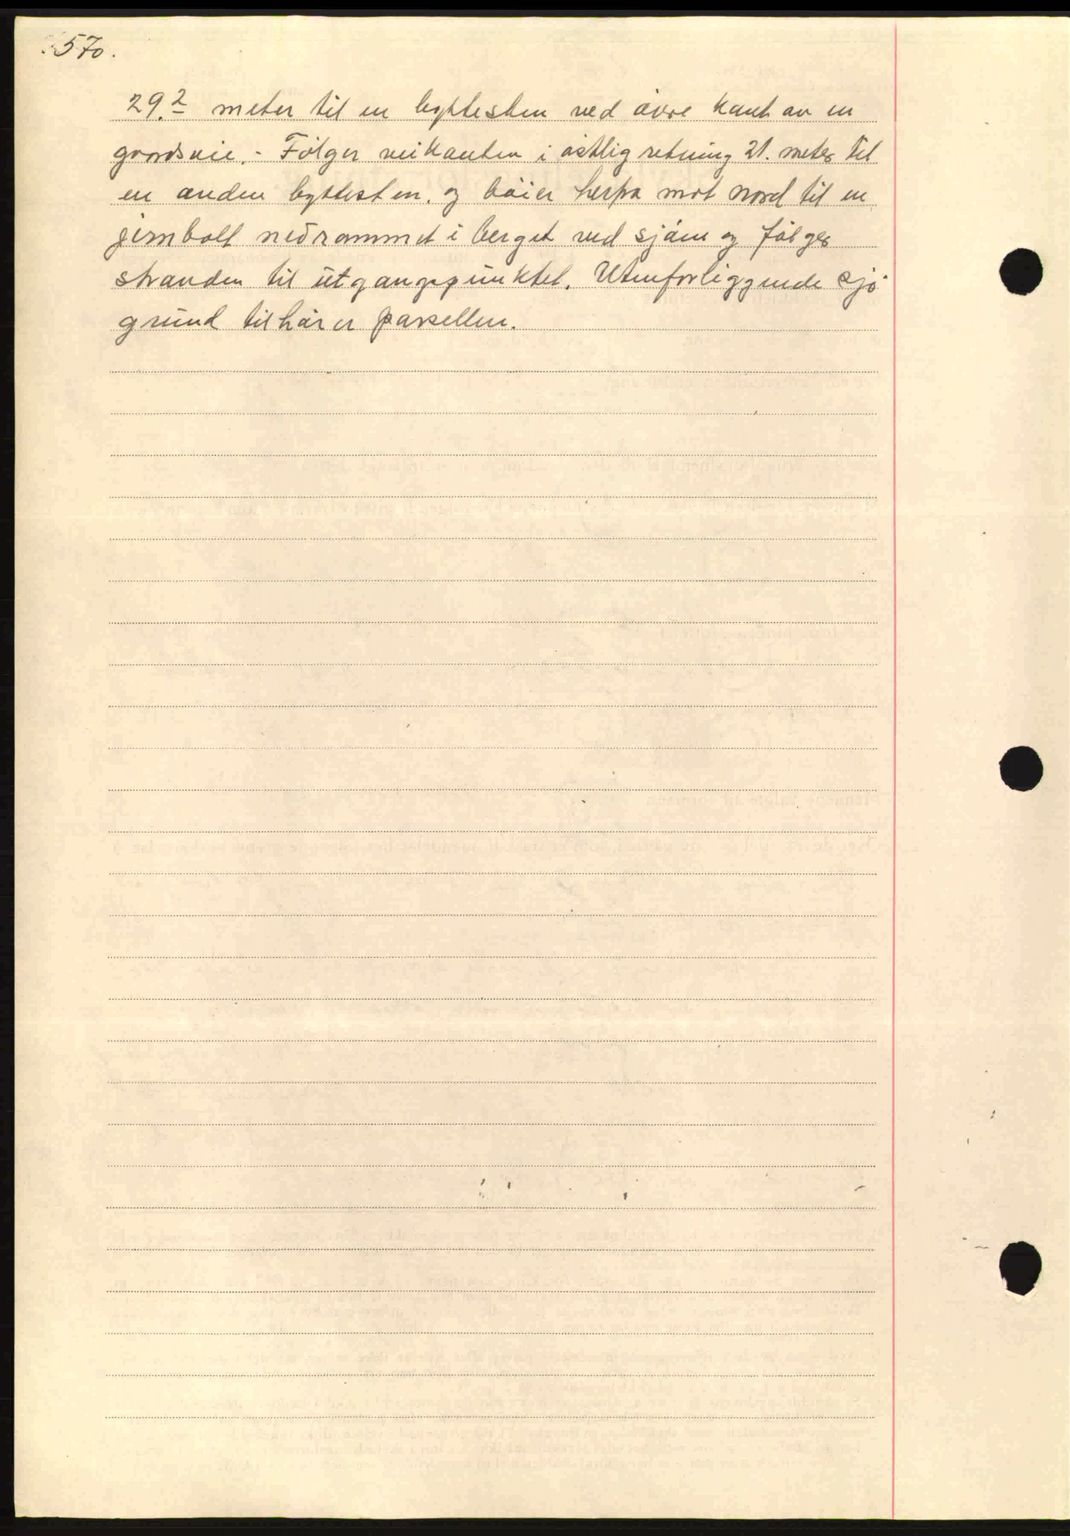 570.
29.2 meter til en byttesten ved övre kant av en
gaardsveie. - Følger veikanten i østlig retning 21. meter til
en anden byttesten. og bøier herfra mot nord til en
jernbolt nedrammet i berget ved sjøen og følger
stranden til utgangspunktet. Utenforliggende sjö
grund tilhører parsellen.